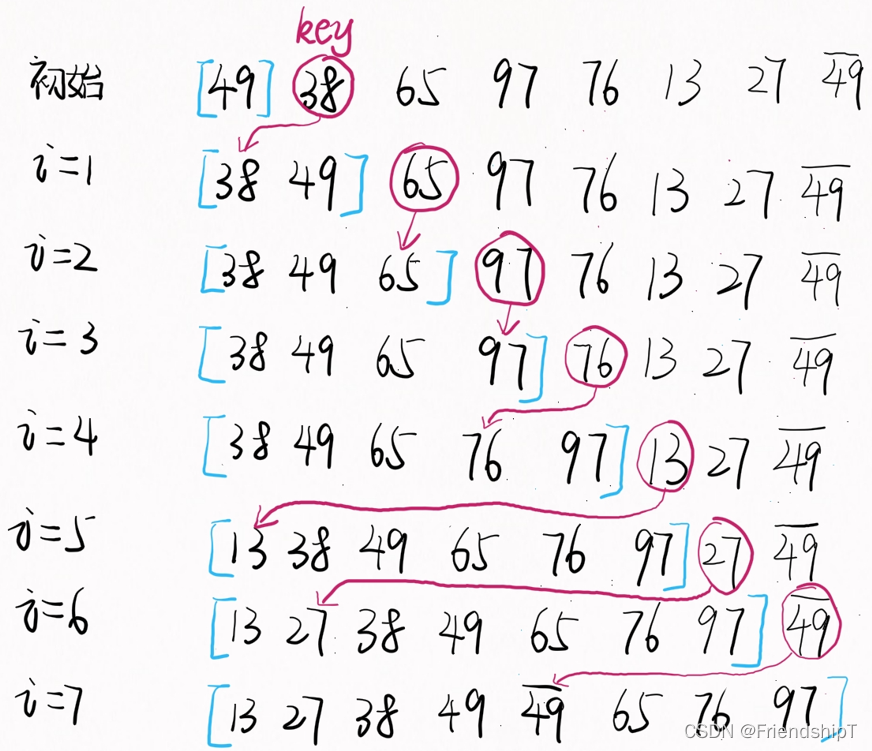 key
初始 [49] 38 65 97 76 13 27 4̅9̅
i=1 [38 49] 65 97 76 13 27 4̅9̅
i=2 [38 49 65] 97 76 13 27 4̅9̅
i=3 [38 49 65 97] 76 13 27 4̅9̅
i=4 [38 49 65 76 97] 13 27 4̅9̅
i=5 [13 38 49 65 76 97] 27 4̅9̅
i=6 [13 27 38 49 65 76 97] 4̅9̅
i=7 [13 27 38 49 4̅9̅ 65 76 97]
CSDN @FriendshipT